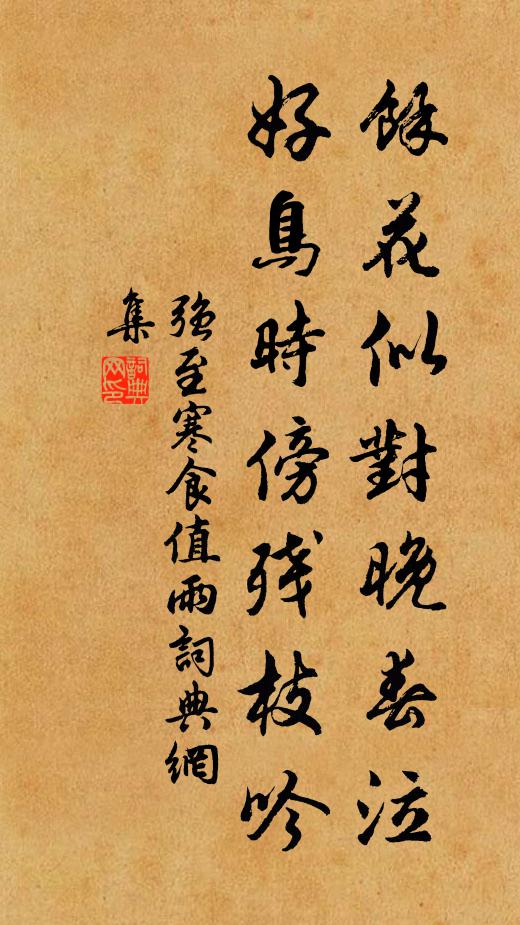 餘花似對晚春泣
好鳥時傍殘枝吟
強至寒食值雨詞典網
集
詞典
网印